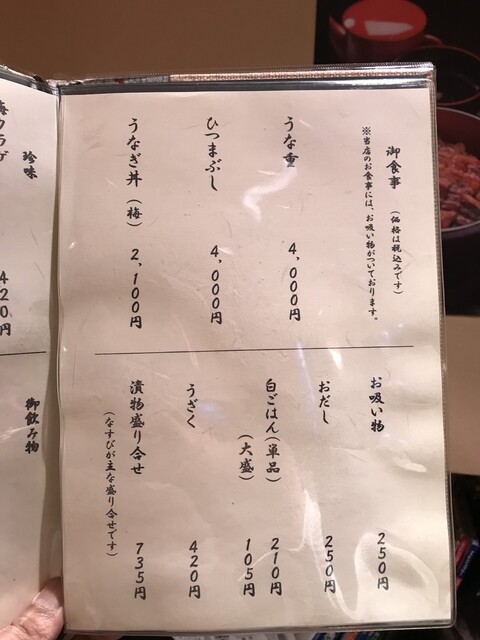 御食事 (価格は税込みです)
※当店のお食事には、お吸い物がついております。
うな重 4,000円
ひつまぶし 4,000円
うなぎ丼(梅) 2,100円
お吸い物 250円
おだし 250円
白ごはん(単品) 210円
(大盛) 105円
うざく 420円
漬物盛り合せ 735円
(なすびが主な盛り合せです)
珍味
420円
御飲み物